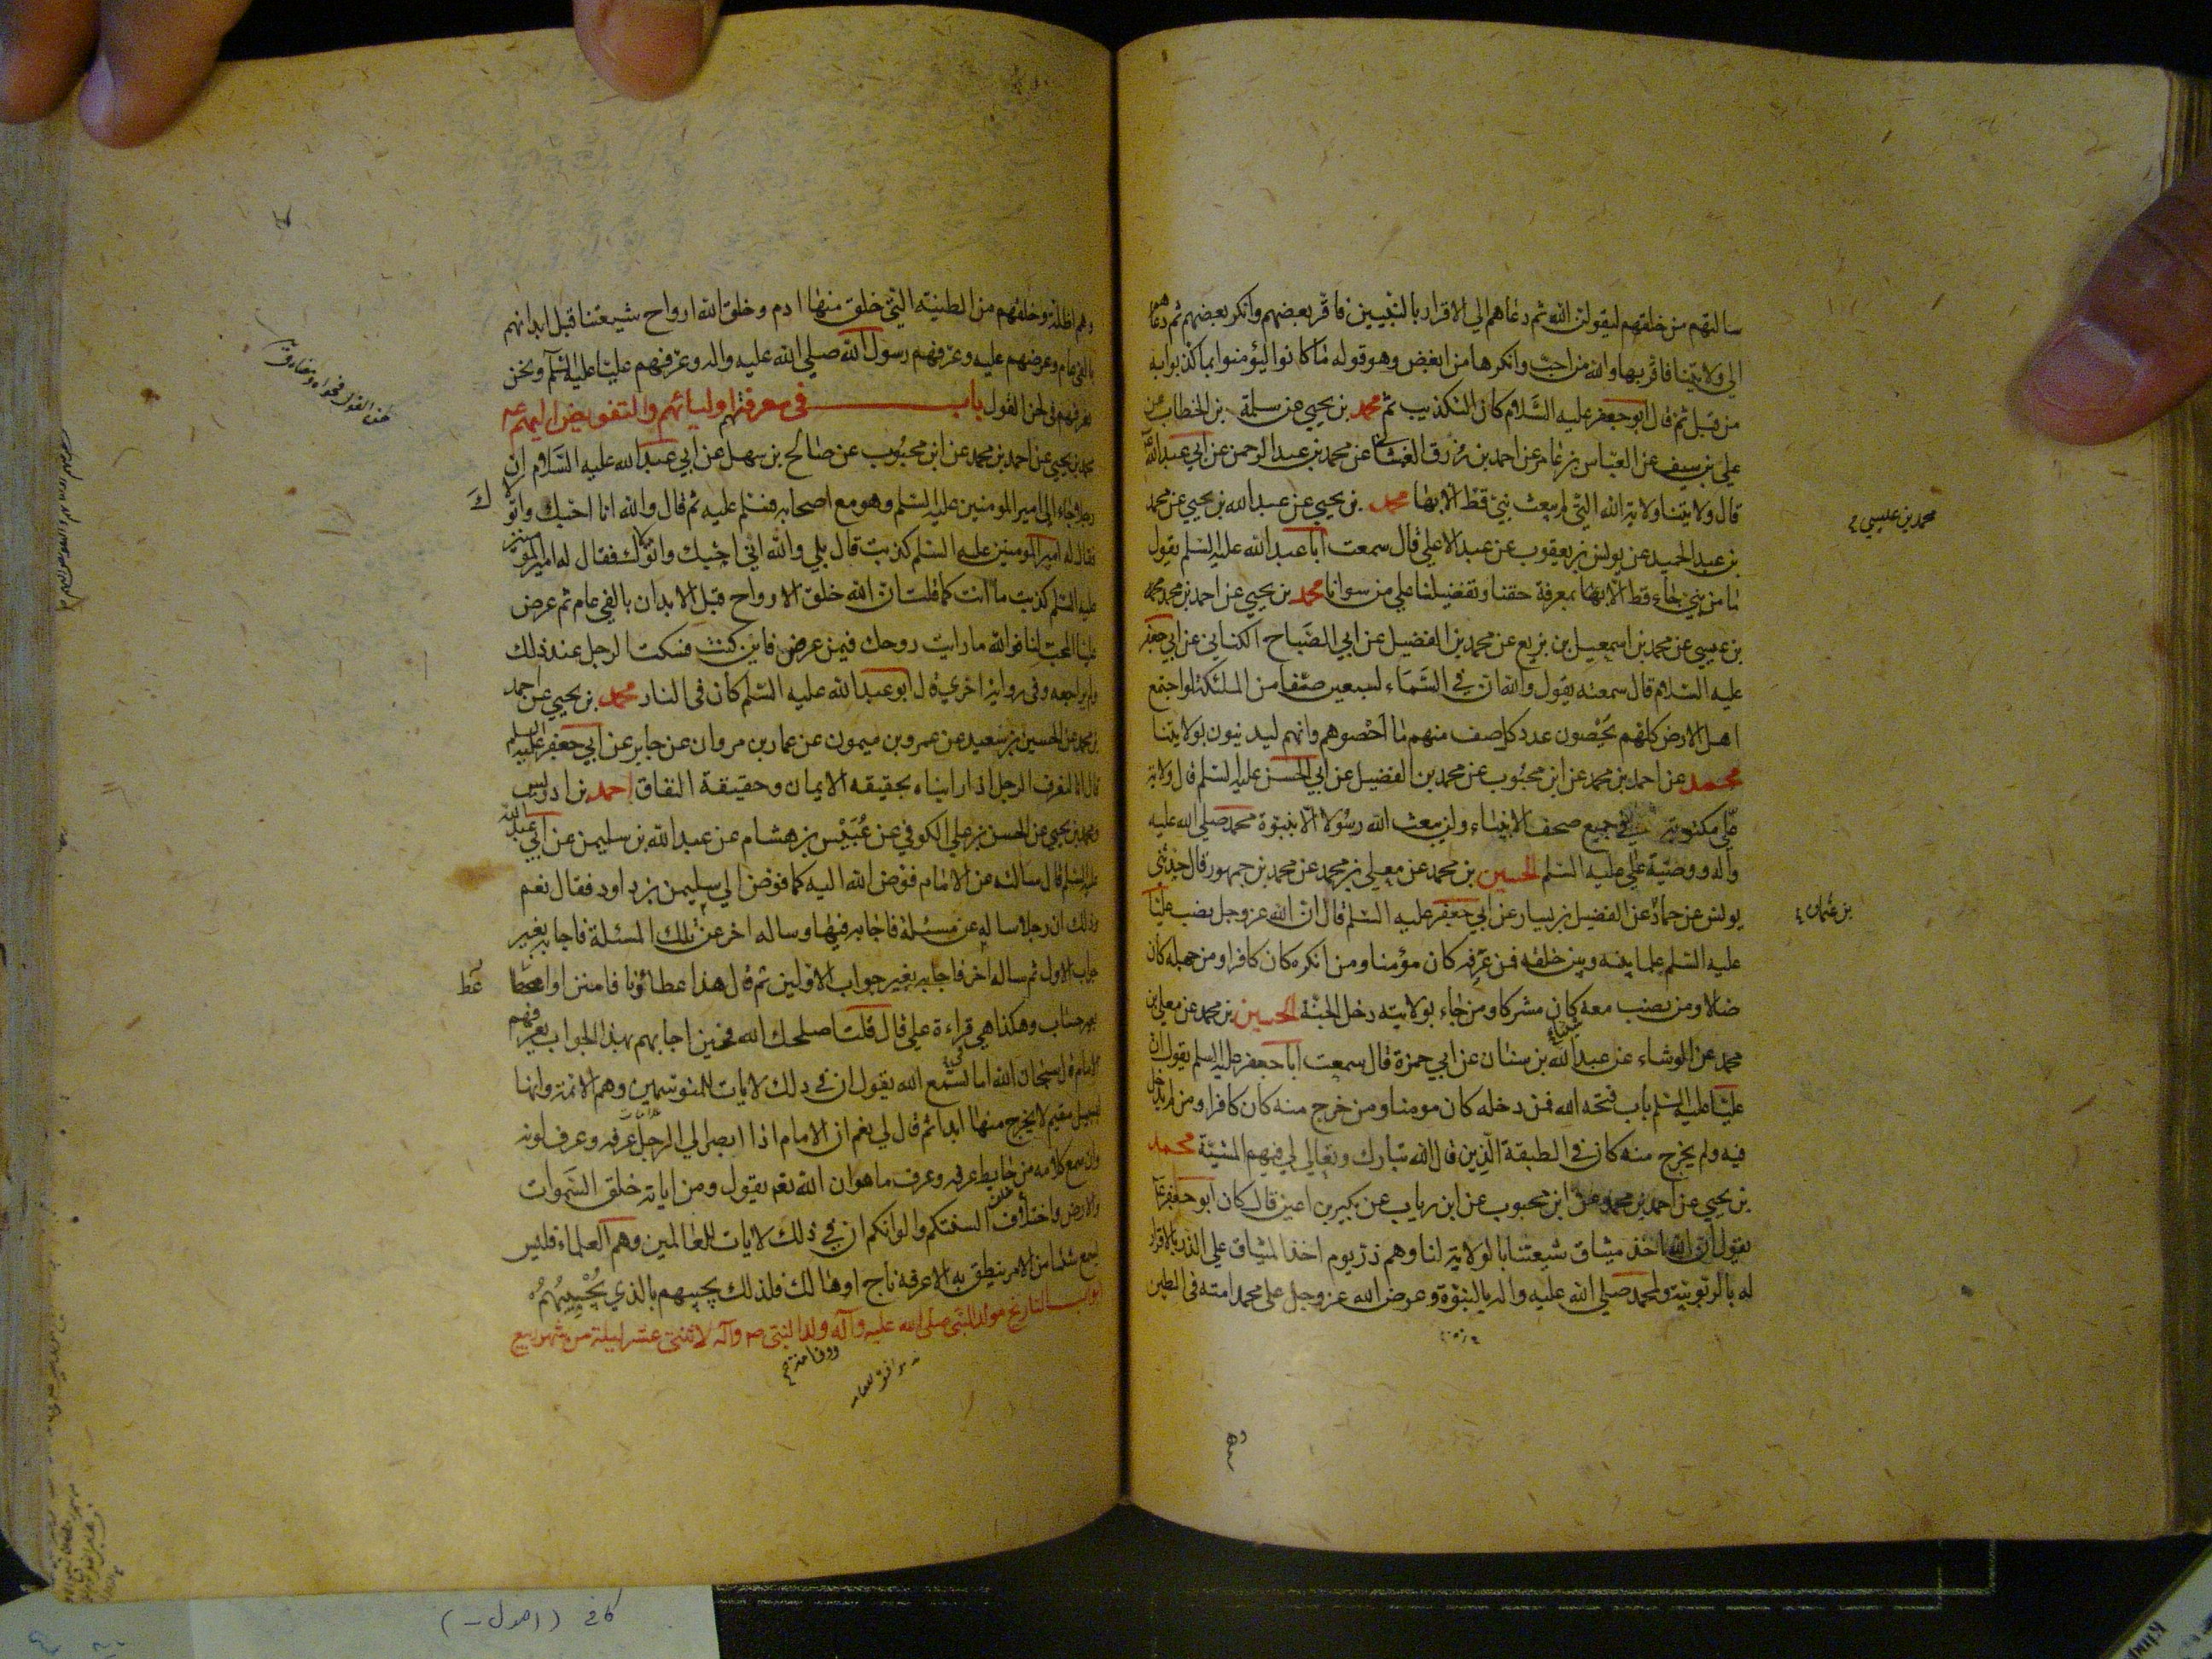 سالتهم من خلقهم ليقولن الله ثم دعاهم الي الاقرار بالنبيين فاقر بعضهم وانكر بعضهم ثم دعاهم
الي ولايتنا فاقر بها والله من احب وانكرها من ابغض وهو قوله ما كانوا ليؤمنوا بما كذبوا به
من قبل ثم قال ابو جعفر عليه السلام كان التكذيب ثم محمد بن يحيي عن سلمة بن الخطاب عن
علي بن سيف عن العباس بن عامر عن احمد بن رزق الغمشاني عن محمد بن عبد الرحمن عن ابي عبد الله
قال ولايتنا ولاية الله التي لم يبعث نبي قط الا بها محمد بن يحيي عن عبد الله بن يحيي عن محمد
محمد بن عيسي
بن عبد الحميد عن يونس بن يعقوب عن عبد الاعلي قال سمعت ابا عبد الله عليه السلم يقول
ما من نبي جاء قط الا بمعرفة حقنا وتفضيلنا علي من سوانا محمد بن يحيي عن احمد بن محمد
بن عيسي عن محمد بن اسمعيل بن بزيع عن محمد بن الفضيل عن ابي الصباح الكناني عن ابي جعفر
عليه السلام قال سمعته يقول والله ان في السماء لسبعين صنفا من الملئكة لو اجتمع
اهل الارض كلهم يحصون عدد كل صف منهم ما احصوهم وانهم ليدينون بولايتنا
محمد عن احمد بن محمد عن ابن محبوب عن محمد بن الفضيل عن ابي الحسن عليه السلم قال ولاية
علي مكتوبة في جميع صحف الانبياء ولن يبعث الله رسولا الا بنبوة محمد صلي الله عليه
واله ووصية علي عليه السلم الحسين بن محمد عن معلي بن محمد عن محمد بن جمهور قال حدثني
يونس عن حماد عن الفضيل بن يسار عن ابي جعفر عليه السلم قال ان الله عز وجل نصب عليا
بن عثمان
عليه السلم علما بينه وبين خلقه فمن عرفه كان مؤمنا ومن انكره كان كافرا ومن جهله كان
ضالا ومن نصب معه كان مشركا ومن جاء بولايته دخل الجنة الحسين بن محمد عن معلي بن
محمد عن الوشاء عن عبد الله بن سنان عن ابي حمزة قال سمعت ابا جعفر عليه السلم يقول ان
عليا عليه السلم باب فتحه الله فمن دخله كان مومنا ومن خرج منه كان كافرا ومن لم يدخل
فيه ولم يخرج منه كان في الطبقة الذين قال الله تبارك وتعالي لي فيهم المشيئة محمد
بن يحيي عن احمد بن محمد عن ابن محبوب عن ابن رياب عن بكير بن اعين قال كان ابو جعفر
يقول ان الله اخذ ميثاق شيعتنا بالولاية لنا وهم ذر يوم اخذ الميثاق علي الذر بالاقرار
له بالربوبية ولمحمد صلي الله عليه واله بالنبوة وعرض الله عز وجل علي محمد امته في الطين
وهم
وهم اظلة وخلقهم من الطينة التي خلق منها ادم وخلق الله ارواح شيعتنا قبل ابدانهم
بالفي عام وعرضهم عليه وعرفهم رسول الله صلي الله عليه واله وعرفهم عليا عليه السلم ونحن
نعرفهم في لحن القول باب في معرفتهم اوليائهم والتفويض اليهم
محمد بن يحيي عن احمد بن محمد عن ابن محبوب عن صالح بن سهل عن ابي عبد الله عليه السلام ان
رجلا جاء الي امير المومنين عليه السلم وهو مع اصحابه فسلم عليه ثم قال والله انا احبك واتو
فقال له امير المومنين عليه السلم كذبت قال بلي والله اني احبك واتولاك فقال له امير المومنين
عليه السلم كذبت ما انت كما قلت ان الله خلق الارواح قبل الابدان بالفي عام ثم عرض
علينا المحب لنا فوالله ما رايت روحك فيمن عرض فاين كنت فسكت الرجل عند ذلك
ولم يراجعه وفي رواية اخري قال ابو عبد الله عليه السلم كان في النار محمد بن يحيي عن احمد
بن محمد عن الحسين بن سعيد عن عمرو بن ميمون عن عمار بن مروان عن جابر عن ابي جعفر عليه السلم
قال انا لنعرف الرجل اذا رايناه بحقيقه الايمان وحقيقة النفاق احمد بن ادريس
ومحمد بن يحيي عن الحسن بن علي الكوفي عن عبيس بن هشام عن عبد الله بن سليمن عن ابي عبد الله
عليه السلم قال سالته عن الامام فوض الله اليه كما فوض الي سليمن بن داود فقال نعم
وذلك ان رجلا ساله عن مسئلة فاجابه فيها وساله اخر عن تلك المسئلة فاجابه بغير
جواب الاول ثم ساله اخر فاجابه بغير جواب الاولين ثم قال هذا عطائونا فامنن او اعط
بغير حساب وهكذا هي قراءة علي قال قلت اصلحك الله فحين اجابهم بهذا الجواب يعرفهم
الامام قال سبحان الله اما تسمع الله يقول ان في ذلك لايات للمتوسمين وهم الائمة وانها
لبسبيل مقيم لا يخرج منها ابدا ثم قال لي نعم ان الامام اذا ابصر الي الرجل عرفه وعرف لونه
وان سمع كلامه من حايط عرفه وعرف ما هو ان الله نعم يقول ومن اياته خلق السموات
والارض واختلاف السنتكم والوانكم ان في ذلك لايات للعالمين وهم العلماء فليس
يسمع شيئا من الامر ينطق به الا عرفه ناج او هالك فلذلك يجيبهم بالذي يجيبهم
ابواب التاريخ مولد النبي صلي الله عليه وآله ولد النبي ص وآله لاثنتي عشر ليلة من شهر ربيع
كافي (اصول -)